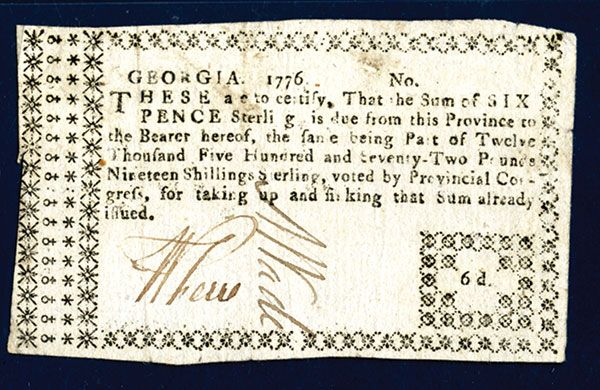 GEORGIA. 1776. No.
THESE a e to certify, That the Sum of SIX
PENCE Sterli g, is due from this Province to
the Bearer hereof, the same being Part of Twelve
Thousand Five Hundred and Seventy-Two Pounds
Nineteen Shillings Sterling, voted by Provincial Con-
gress, for taking up and sinking that Sum already
issued.
Wade
6 d.